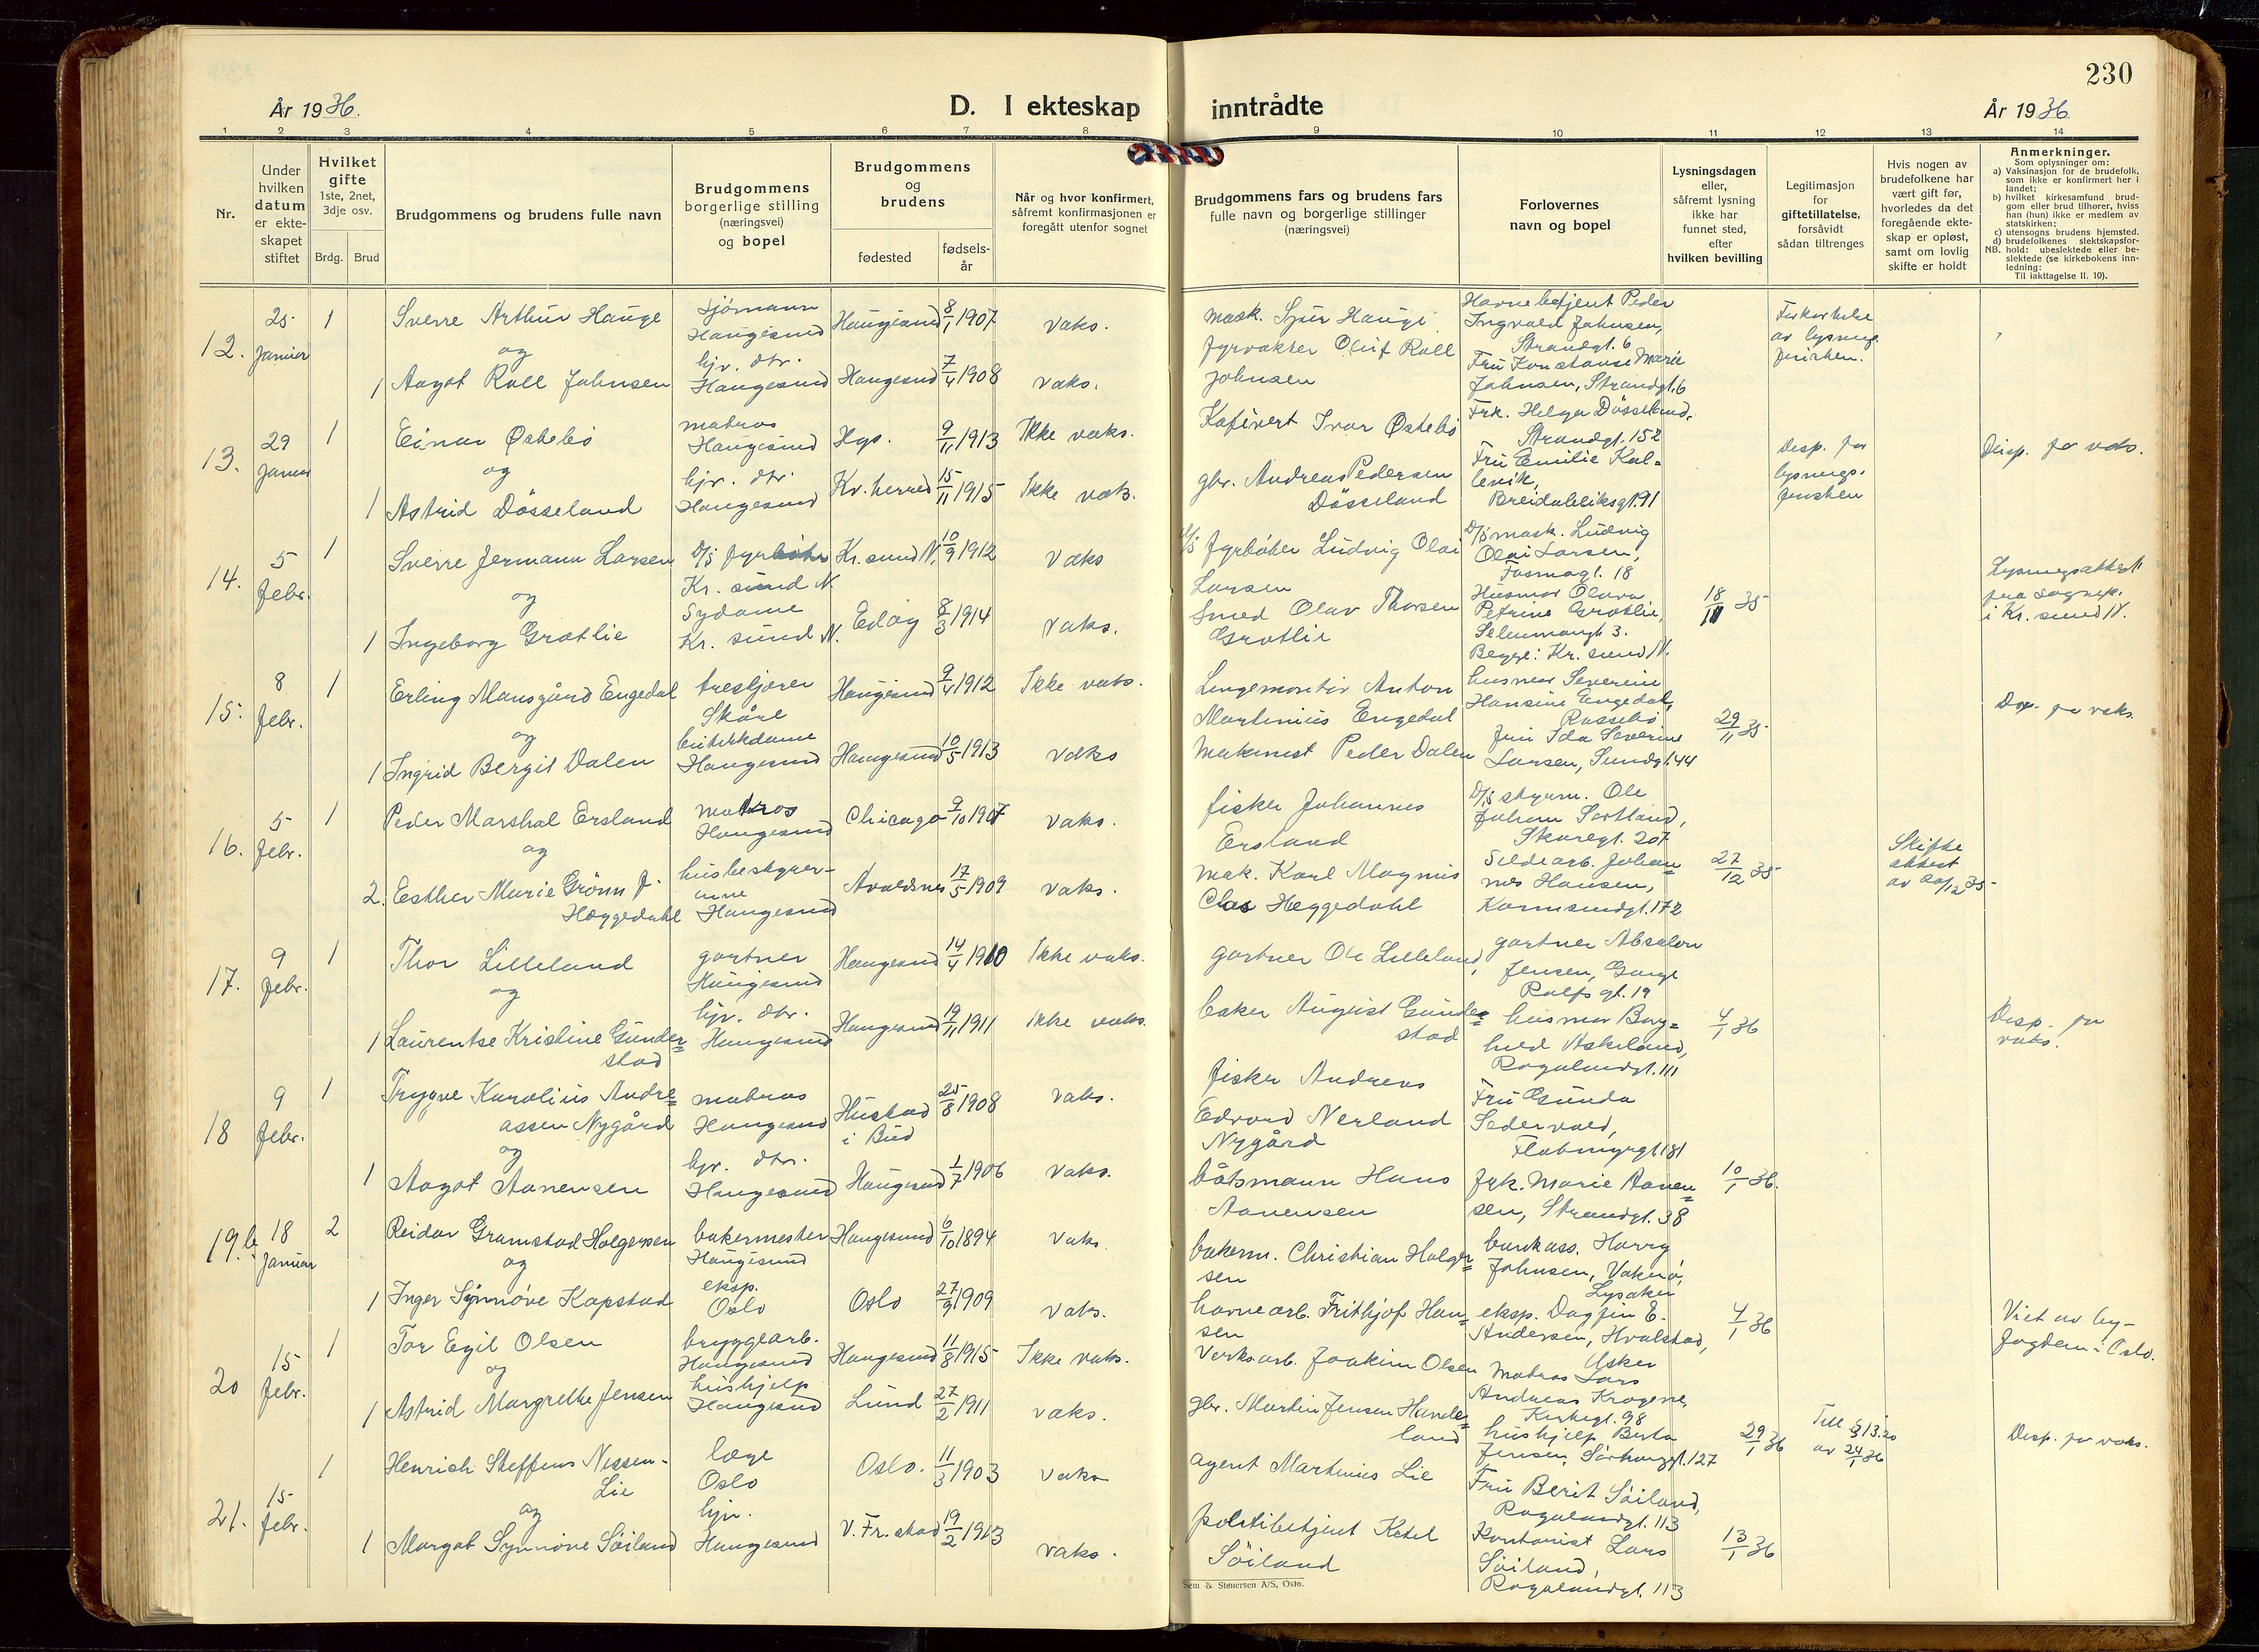 230
År 1936.
D. I ekteskap inntrådte
År 1936
1 2 3 4 5 6 7 8 9 10 11 12 13 14
Nr.
Under hvilken datum er ekteskapet stiftet
Hvilket gifte 1ste, 2net, 3dje osv.
Brdg. Brud
Brudgommens og brudens fulle navn
Brudgommens borgerlige stilling (næringsvei) og bopel
Brudgommens og brudens
fødested
fødselsår
Når og hvor konfirmert, såfremt konfirmasjonen er foregått utenfor sognet
Brudgommens fars og brudens fars fulle navn og borgerlige stillinger (næringsvei)
Forlovernes navn og bopel
Lysningsdagen eller, såfremt lysning ikke har funnet sted, efter hvilken bevilling
Legitimasjon for giftetillatelse, forsåvidt sådan tiltrenges
Hvis nogen av brudefolkene har vært gift før, hvorledes da det foregående ekteskap er opløst, samt om lovlig skifte er holdt
Anmerkninger.
Som oplysninger om:
a) Vaksinasjon for de brudefolk, som ikke er konfirmert her i landet;
b) hvilket kirkesamfund brudgom eller brud tilhører, hviss han (hun) ikke er medlem av statskirken;
c) utensogns brudens hjemsted.
d) brudefolkenes slektskapsforhold: ubeslektede eller beslektede (se kirkebokens innledning:
NB.
Til iakttagelse II. 10).
12. 25 Januar 1 Sverre Arthur Hauge sjømann Haugesund Haugesund 8/1 1907 vaks. mask. Sjur Hauge Havnebetjent Peder Ingvald Johnsen, Strandgt. 6
og
1 Aagot Roll Johnsen hjv. dtr. Haugesund Haugesund 7/4 1908 vaks. fyrvokter Oluf Roll Johnsen Fru Konstanse Marie Johnsen, Strandgt. 6
av lysning
13. 29 Januar 1 Einar Østebö matros Haugesund Hgs. 9/11 1913 Ikke vaks. Kafévert Ivar Østebö Frk. Helga Dösseland, Strandgt. 152 Disp. for
og
1 Astrid Dösseland hjv. dtr. Haugesund Kv. herred 15/11 1915 Ikke vaks. gbr. Andreas Pedersen Dösseland Fru Emilie Kallevik, Breidablikgt. 91 lysnings. fristen
Disp. for vaks.
14. 5 febr. 1 Sverre Jermann Larsen D/s fyrböter Kr. sund N. Kr. sund N. 10/9 1912 vaks D/s fyrböter Ludvig Olai Larsen D/s mask. Ludvig Olai Larsen, Fosnagt. 18
og
1 Ingeborg Grøtlie Sydame Kr. sund N. Edøy 8/3 1914 vaks. Smed Olav Thorsen Grøtlie Husmor Olava Petrine Grøtlie, 3. Begge: Kr. sund N. 18/11 35
Lysningsattest fra sognepr. i Kr. sund N.
15. 8 febr. 1 Erling Mansgård Engedal treskjærer Skåre Haugesund 9/4 1912 Ikke vaks. Lingemontör Anton Martinius Engedal husmor Severine Hansine Engedal, Rossebö
og
1 Ingrid Bergit Dalen butikkdame Haugesund Haugesund 10/5 1913 vaks Maskinist Peder Dalen Fru Ida Severine Larsen, Sundgt. 44 29/11 35
Disp. for vaks.
16. 5 febr. 1 Peder Marshal Ersland matros Haugesund Chicago 9/10 1907 vaks. fisker Johannes Ersland D/s styrm. Ole Johan Sortland, Skaregt. 207
og
2. Esther Marie Grönn f. Heggedahl husbestyrerinne Haugesund Avaldsnes 17/5 1909 vaks. mak. Karl Magnus Clas Heggedahl Sildearb. Johannes Hansen, Karmsundgt. 172 27/12 35
Skifte attest av 20/12 35
17. 9 febr. 1 Thor Lilleland gartner Haugesund Haugesund 14/4 1910 Ikke vaks. gartner Ole Lilleland, gartner Absalon Jensen, Gange Rolfs gt. 19
og
1 Laurentse Kristine Gunderstad hjv. dtr. Haugesund Haugesund 19/11 1911 Ikke vaks. baker August Gunderstad husmor Borghild Askeland, Rogalandgt. 111 4/1 36
Disp. for vaks.
18 9 febr. 1 Trygve Karolius Andreassen Nygård matros Haugesund Hustad i Bud 25/8 1908 vaks. fisker Andreas Edvard Nerland Nygård Fru Gunda Sedervald, Flotmyrgt. 181
og
1 Aagot Aanensen hjv. dtr. Haugesund Haugesund 1/7 1906 vaks. båtsmann Hans Aanensen frk. Marie Aanensen, Strandgt. 38 10/1 36.
19.b 18 Januar 2 Reidar Gramstad Holgersen bakermester Haugesund Haugesund 6/10 1894 vaks. bakerm. Christian Holgersen bankass. Harry Johnsen, Vakerö, Lysaker
og
1 Inger Synnöve Kopstad eksp. Oslo Oslo 27/9 1909 vaks. havnearb. Frithjof Hansen eksp. Dagfin E. Andersen, Hvalstad, Asker 4/1 36
Viet av byfogden i Oslo.
20 15 febr. 1 Tor Egil Olsen bryggearb. Haugesund Haugesund 11/8 1915 Ikke vaks. Verksarb. Joakim Olsen Matros Lars Andreas Krogene, Kirkegt. 98
og
1 Astrid Margrethe Jensen hushjelp Haugesund Lund 27/2 1911 vaks. gbr. Martin Jensen hushjelp Berta Jensen, Sørhauggt. 127 29/1 36 Till § 13.20 av 24/1 36
Disp. for vaks.
21. 15 febr. 1 Henrich Steffens Nissen-Lie læge Oslo Oslo. 11/3 1903 vaks agent Martinius Lie Fru Berit Söiland, Rogalandgt. 113
og
1 Margot Synnöve Söiland hjv. Haugesund V. Fr. stad 19/2 1913 vaks. politibetjent Ketil Söiland Kontorist Lars Söiland, Rogalandgt. 113 13/1 36
Sem & Stenersen A/S, Oslo.